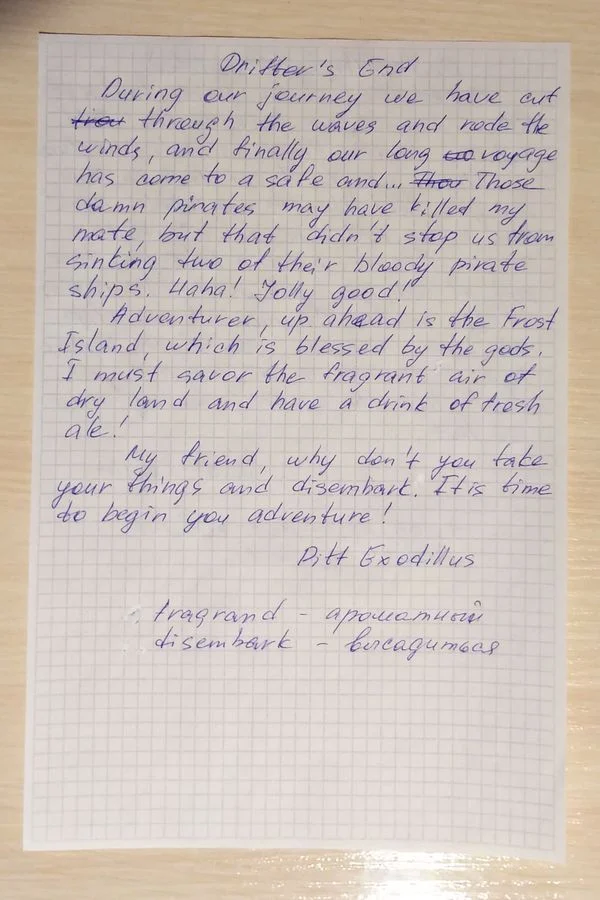 Drifter's End
During our journey we have cut
through the waves and rode the
winds, and finally our long voyage
has come to a safe and... Those
damn pirates may have killed my
mate, but that didn't stop us from
sinking two of their bloody pirate
ships. Haha! Jolly good!
Adventurer, up ahead is the Frost
Island, which is blessed by the gods.
I must savor the fragrant air of
dry land and have a drink of fresh
ale!
My friend, why don't you take
your things and disembark. It is time
to begin you adventure!
Pitt Exodillus
fragrand - ароматный
disembark - высадиться